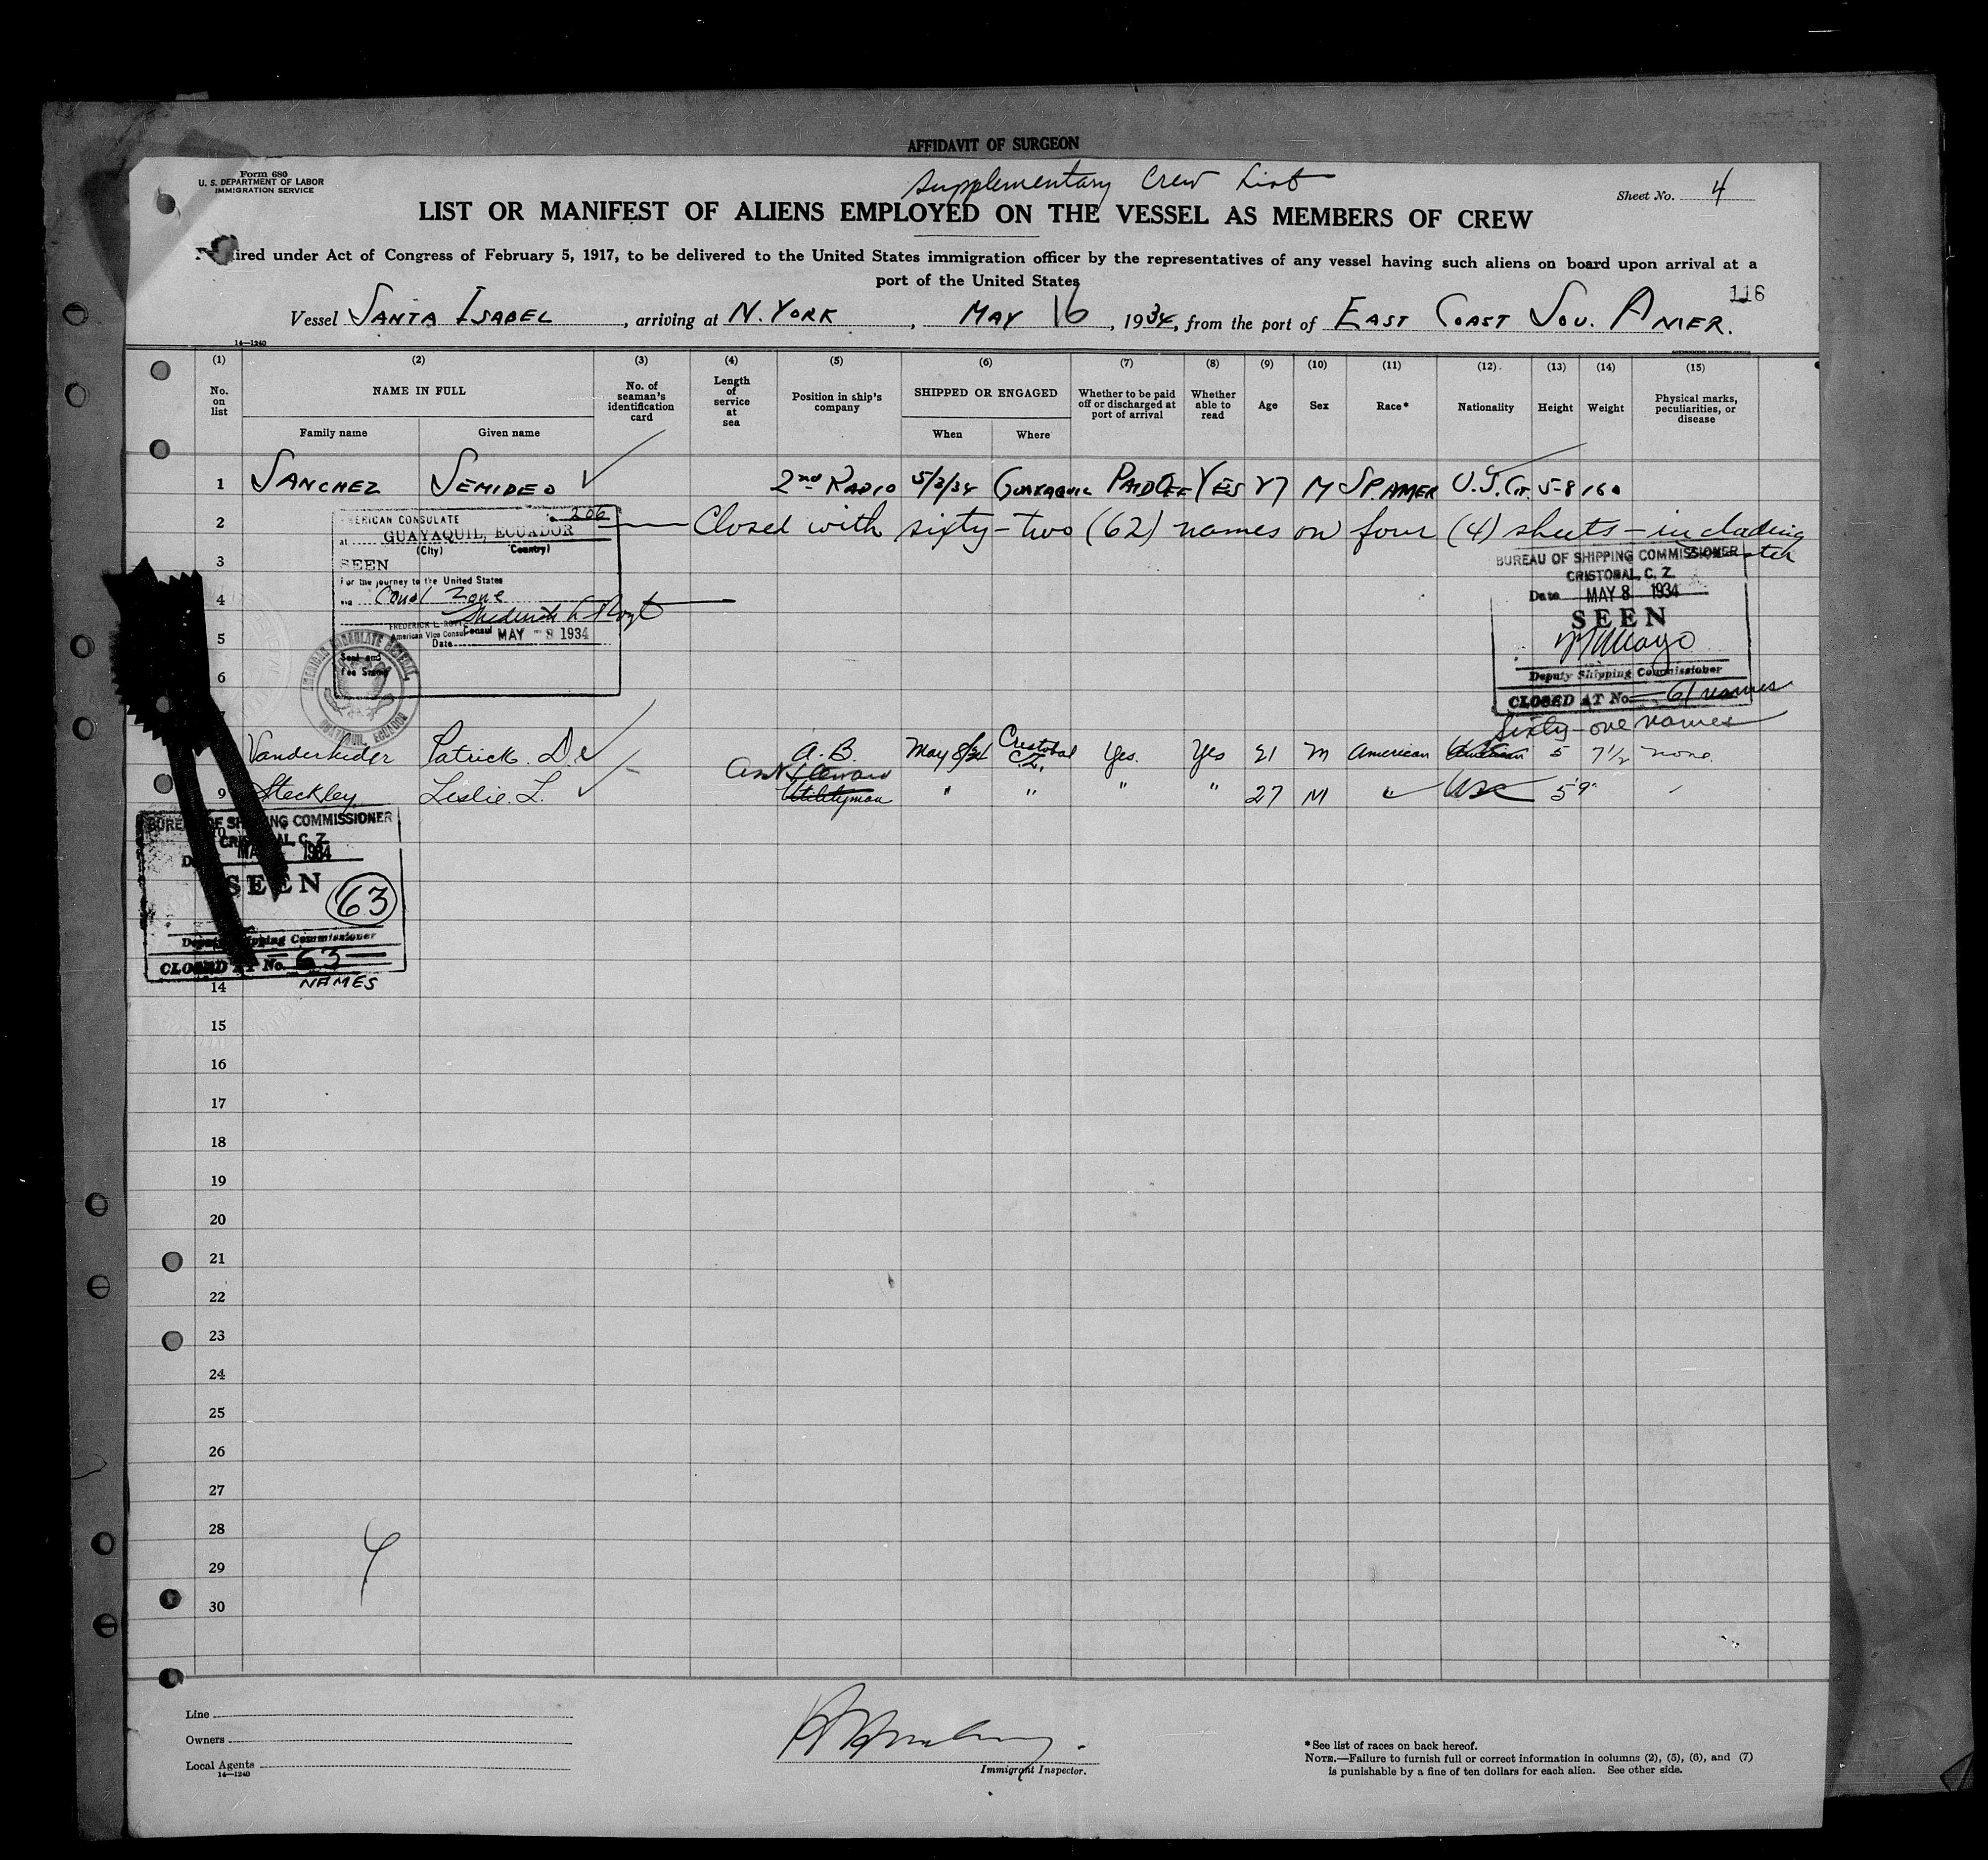 AFFIDAVIT OF SURGEON
Form 680
U. S. DEPARTMENT OF LABOR
IMMIGRATION SERVICE
Supplementary Crew List
Sheet No. 4
LIST OR MANIFEST OF ALIENS EMPLOYED ON THE VESSEL AS MEMBERS OF CREW
ired under Act of Congress of February 5, 1917, to be delivered to the United States immigration officer by the representatives of any vessel having such aliens on board upon arrival at a
port of the United States
116
Vessel SANTA ISABEL, arriving at N. YORK, MAY 16, 1934, from the port of EAST COAST SOU. AMER.
14—1240
GOVERNMENT PRINTING OFFICE
(1) (2) (3) (4) (5) (6) (7) (8) (9) (10) (11) (12) (13) (14) (15)
No. on list NAME IN FULL No. of seaman's identification card Length of service at sea Position in ship's company SHIPPED OR ENGAGED Whether to be paid off or discharged at port of arrival Whether able to read Age Sex Race* Nationality Height Weight Physical marks, peculiarities, or disease
Family name Given name When Where
1 SANCHEZ SEMIDEO 2nd RADIO 5/3/34 GUAYAQUIL PAID OFF YES 27 M SP. AMER U.S. CIT. 5-8 160
2 Closed with sixty-two (62) names on four (4) sheets — including
AMERICAN CONSULATE 206
at GUAYAQUIL, ECUADOR
(City) (Country)
SEEN
For the journey to the United States
via Canal Zone
FREDERICK L. ROYT
American Vice Consul Consul
Date MAY - 3 1934
Seal and
Fee Stamp
AMERICAN CONSULATE GENERAL
GUAYAQUIL, ECUADOR
BUREAU OF SHIPPING COMMISSIONER
CRISTOBAL, C. Z.
Date MAY 8 1934
SEEN
Deputy Shipping Commissioner
CLOSED AT No. 61 names
Sixty-one names
3
4
5
6
Vanderheider Patrick. D. A. B. May 8/34 Cristobal C.Z. Yes. Yes 21 M American 5 7 1/2 none.
Asst Steward
9 Steckley Leslie. L. Utilityman " " " " 27 M " USC 5'9"
BUREAU OF SHIPPING COMMISSIONER
CRISTOBAL, C. Z.
MAY 1934
SEEN
63
Deputy Shipping Commissioner
CLOSED AT No. 63
NAMES
10
14
15
16
17
18
19
20
21
22
23
24
25
26
27
28
29
30
4
Line
Owners
Local Agents
14—1240
Immigrant Inspector.
*See list of races on back hereof.
NOTE.—Failure to furnish full or correct information in columns (2), (5), (6), and (7)
is punishable by a fine of ten dollars for each alien. See other side.